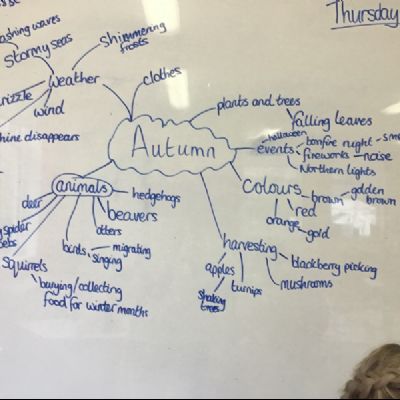 Thursday
stormy seas
shimmering
frosts
weather
wind
disappears
clothes
plants and trees
falling leaves
Autumn
halloween
events
bonfire night
fireworks - noise
Northern lights
colours
brown
golden
brown
red
orange
gold
animals
hedgehogs
beavers
otters
deer
spider
birds
migrating
singing
squirrels
burying/collecting
food for winter months
harvesting
blackberry picking
mushrooms
apples
turnips
shaking
trees